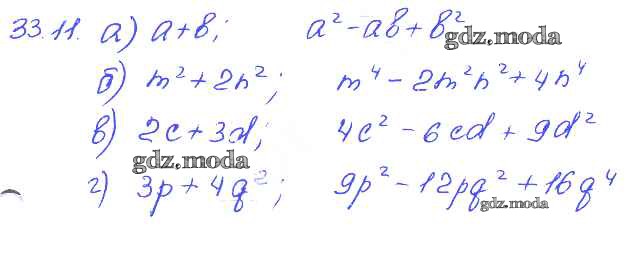 33.11. а) a + b; a² - ab + b²
gdz.moda
б) m² + 2n²; m⁴ - 2m²n² + 4n⁴
в) 2c + 3d; 4c² - 6cd + 9d²
gdz.moda
г) 3p + 4q²; 9p² - 12pq² + 16q⁴
gdz.moda